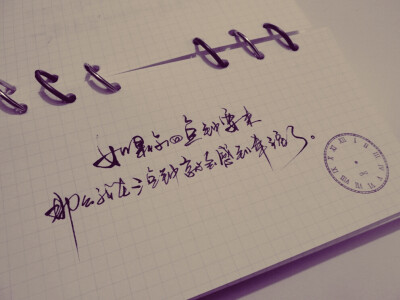 如果你四点钟要来
那么我在三点钟就会感到幸福了。